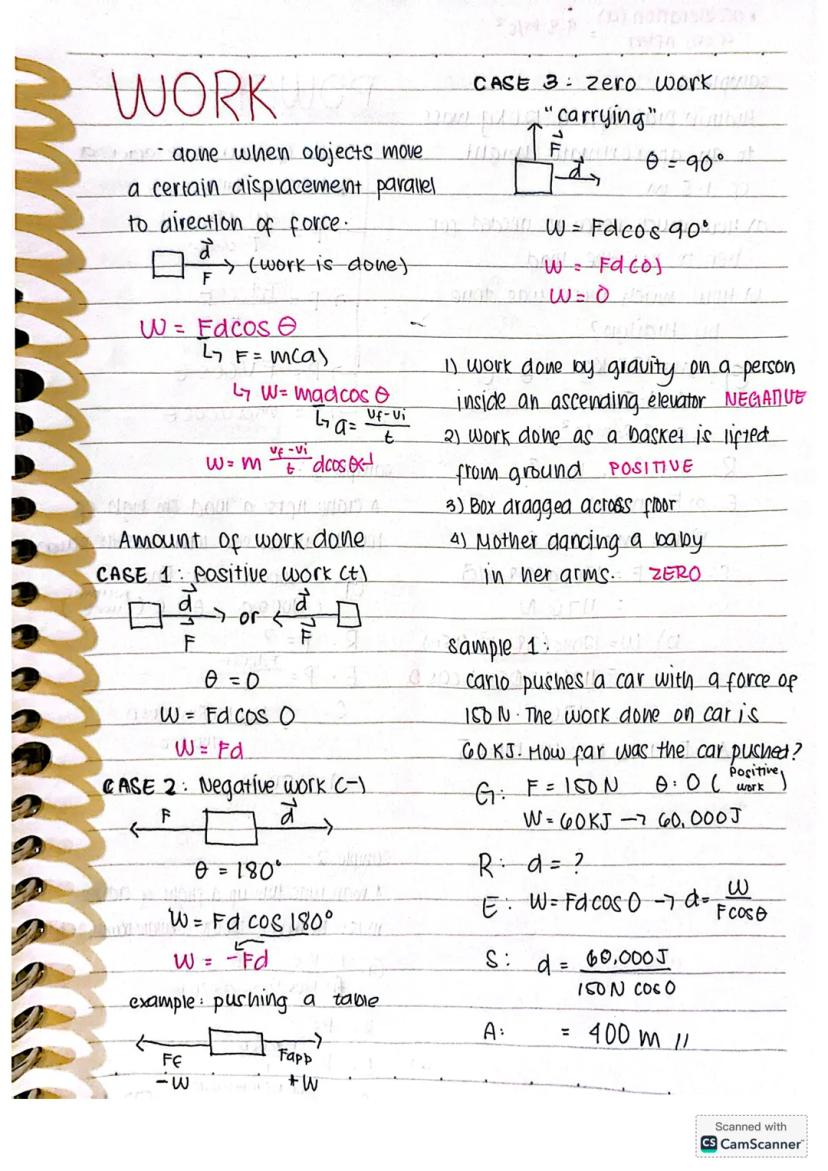 WORK
- done when objects move
a certain displacement parallel
to direction of force.
d
F
(work is done)
W = Fdcos θ
↳ F = m(a)
↳ W = madcos θ
↳ a = vf-vi / t
W = m vf-vi / t dcosθ
Amount of work done
CASE 1: Positive work (+)
d or d
F F
θ = 0
W = Fdcos 0
W = Fd
CASE 2: Negative work (-)
F d
θ = 180°
W = Fd cos 180°
W = -Fd
example: pushing a table
Ff Fapp
-W +W
CASE 3: zero work
"carrying"
F
d
θ = 90°
W = Fdcos 90°
W = Fd(0)
W = 0
1) Work done by gravity on a person
inside an ascending elevator NEGATIVE
2) Work done as a basket is lifted
from ground POSITIVE
3) Box dragged across floor
4) Mother dancing a baby
in her arms. ZERO
Sample 1:
Carlo pushes a car with a force of
150 N. The work done on car is
60 KJ. How far was the car pushed?
G: F = 150 N θ: 0 (positive work)
W = 60KJ → 60,000J
R: d = ?
E: W = Fd cos 0 → d = W / Fcosθ
S: d = 60,000J / 150 N cos 0
A: = 400 m //
Scanned with
CS CamScanner